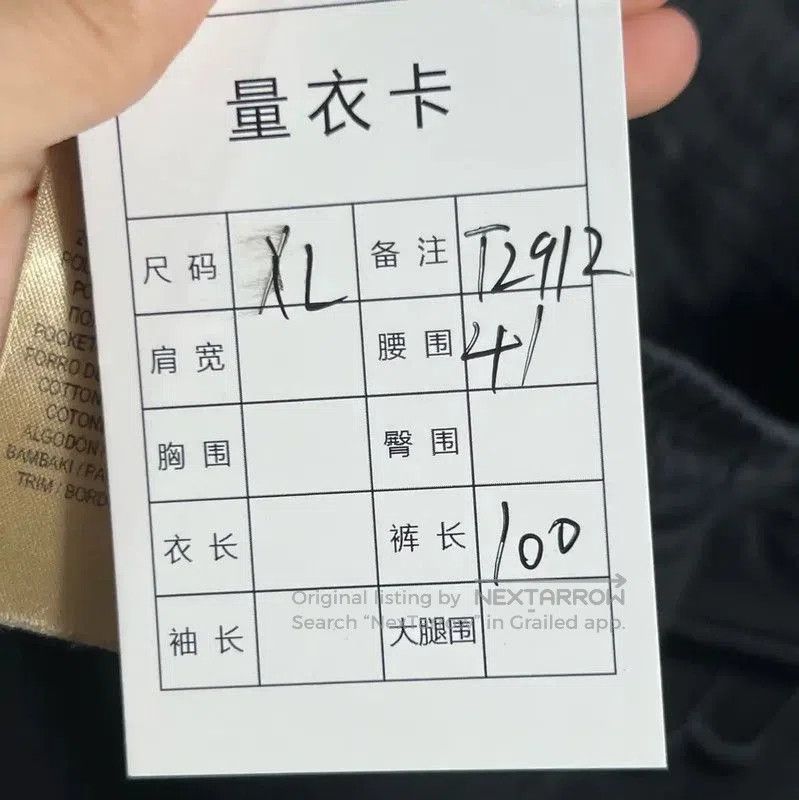 量衣卡
尺码 XL 备注 T2912
肩宽 腰围 41
胸围 臀围
衣长 裤长 100
袖长 大腿围
POCKET
FORRO
COTTON
ALGODON
BAMBAKI / PA
TRIM / BORD
Original listing by NEXTARROW
in Grailed app.
Search